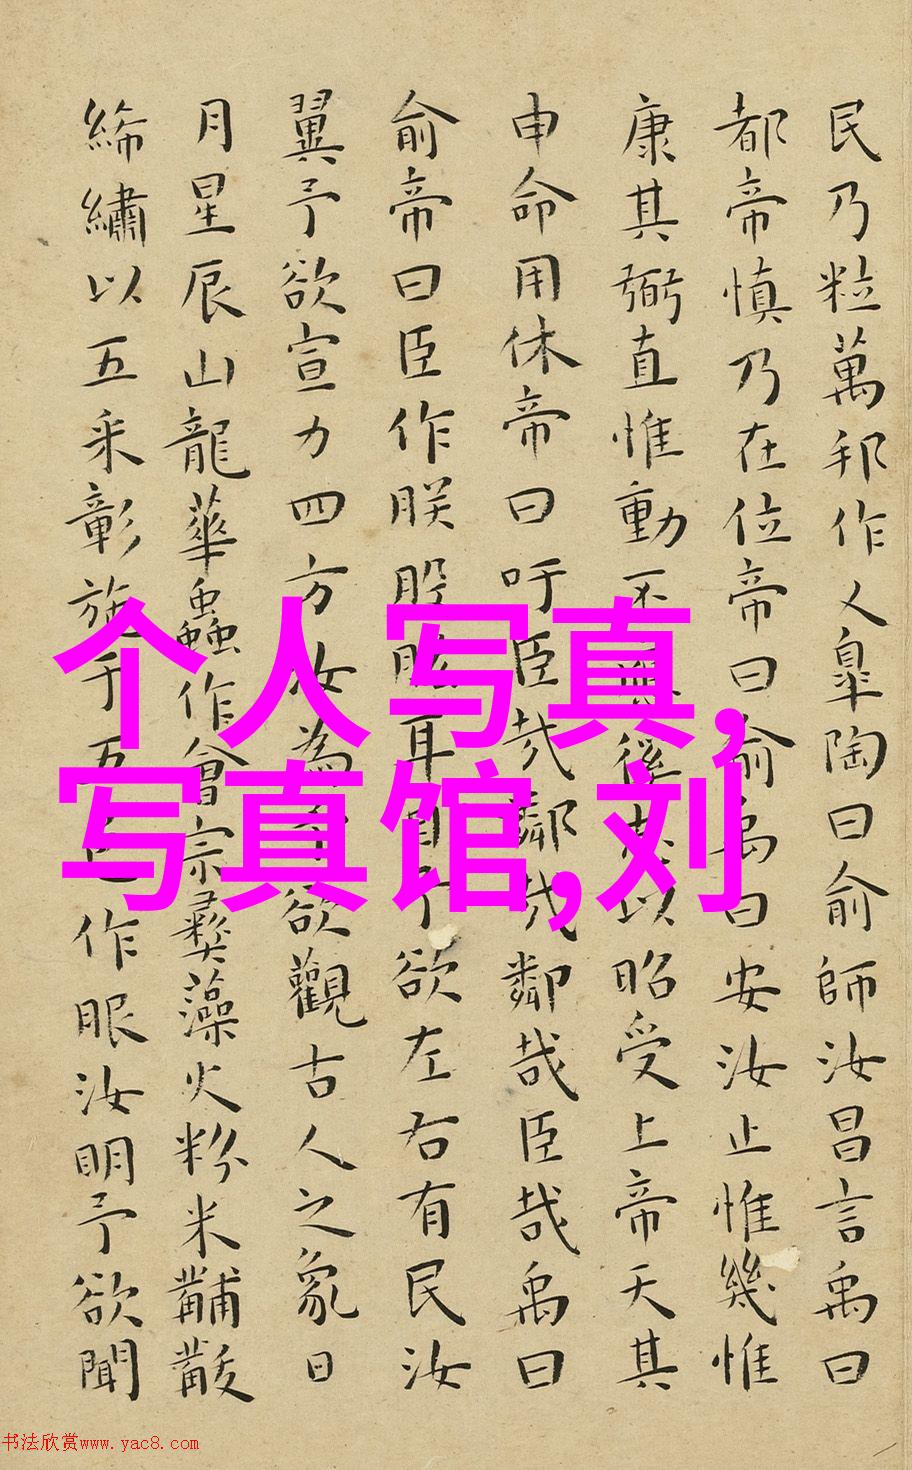 民乃粒萬邦作人皐陶曰俞師汝昌言禹曰
都帝慎乃在位帝曰俞禹曰安汝止惟幾惟
康其弼直惟動丕以昭受上帝天其
申命用休帝曰吁臣哉鄰哉鄰哉臣哉禹曰
俞帝曰臣作朕股肱耳目予欲左右有民汝
翼予欲宣力四方汝為予欲觀古人之象日
月星辰山龍華蟲作會宗彝藻火粉米黼黻
絺繡以五采彰施于五色作服汝明予欲聞
个人写真,
写真馆,刘
书法欣赏www.yac8.com